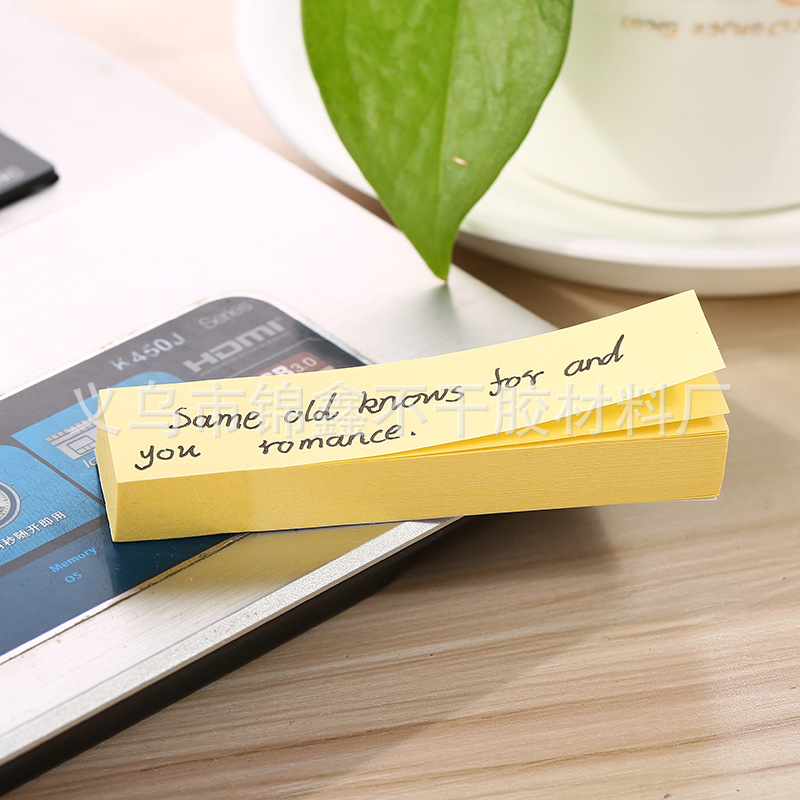 K450J Series
HDMI
3.0
义乌市锦鑫不干胶材料厂
Same old knows for and
you romance.
秒随开即用
Memory
OS